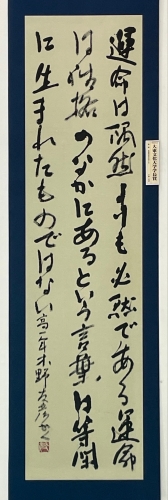 運命は偶然よりも必然である運命
は性格のなかにあるという言葉は等閑
に生まれたものではない高一年木野友彦かく